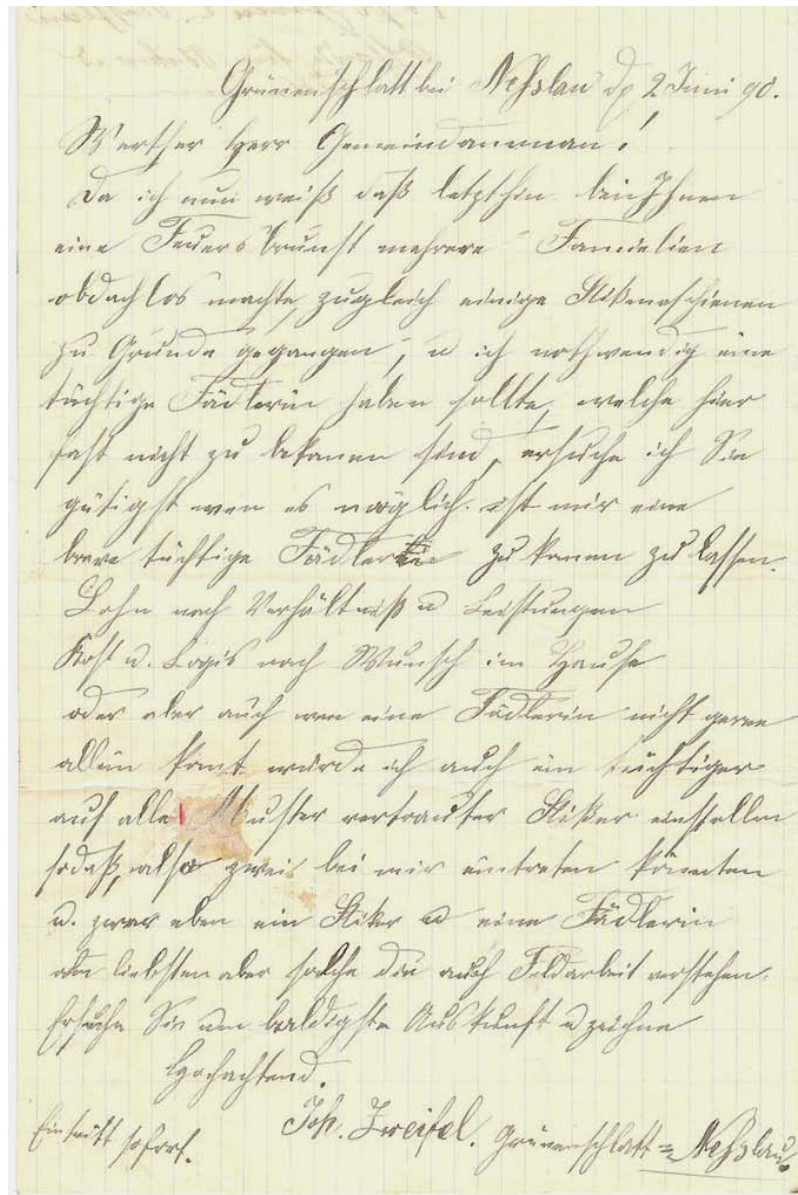 Grünenschlatt bei Neßslau d. 2 Juni 90.
Werther Herr Gemeindamman!
Da ich nun weiß daß letzthin bei Ihnen
eine Feuersbrunst mehrere Famielien
obdachlos machte, zugleich einige Stikmaschienen
zu Grunde gegangen, u ich nothwendig eine
tüchtige Fädlerin haben sollte, welche hier
fast nicht zu bekomen sind, ersuche ich Sie
gütigst wen es möglich ist mir eine
brave tüchtige Fädlerin zu komen zu lassen.
Lohn nach Verhältniß u Leistungen
Kost u. Logis nach Wunsch im Hause
oder aber auch wen eine Fädlerin nicht gerne
allein komt würde ich auch ein tüchtiger
auf alle Muster vertrauter Stiker einstellen
sodaß, also zwei bei mir eintreten könnten
u. zwar eben ein Stiker u eine Fädlerin
am liebsten aber solche die auch Feldarbeit verstehen.
Ersuche Sie um baldigste Auskunft u zeichne
Hochachtend.
Joh. Zweifel. Grünenschlatt = Neßslau.
Eintritt sofort.